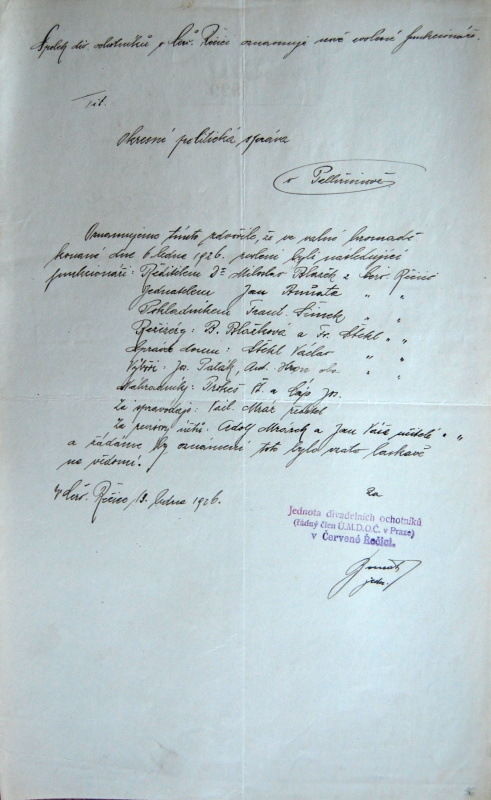 Spolek div. ochotníků v Červ. Řečici oznamuje nově zvolené funkcionáře.
Tit.
Okresní politická správa
v Pelhřimově
Oznamujeme tímto zdvořile, že ve valné hromadě
konané dne 6. ledna 1926 zvoleni byli následující
funkcionáři: Ředitelem Dr Miloslav z Červ. Řečice
Jednatelem Jan " "
Pokladníkem Frant. Šimek " "
Režiséry: B. a Fr. Stehl " "
Správce domu: Stehl Václav " "
Výboři: Jos. Ant.
Náhradníky: Prokeš a Čáp Jos.
Za zpravodaje: Mráz ředitel
Za revisory účtů: Adolf a Jan učitelé " "
a žádáme by oznámení toto bylo vzato laskavě
na vědomí.
V Červ. Řečici, ledna 1926.
Za
Jednota divadelních ochotníků
(řádný člen Ú.M.D.O.Č. v Praze)
v Červené Řečici.
jedn.